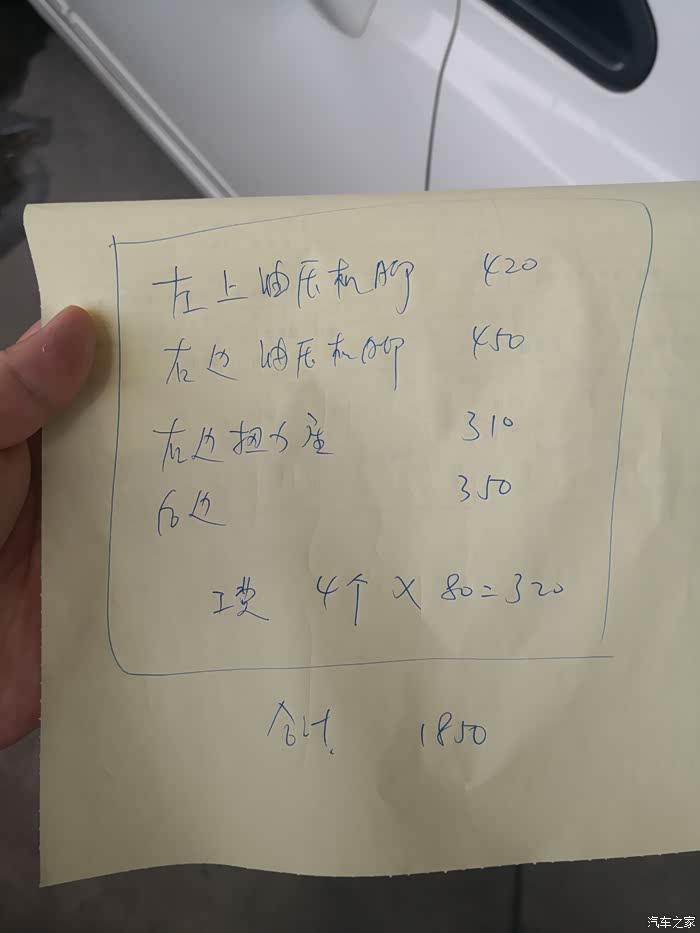 左上油压机脚 420
右边油压机脚 450
右边扭力座 310
后边 350
工费 4个 X 80=320
合计. 1850
汽车之家